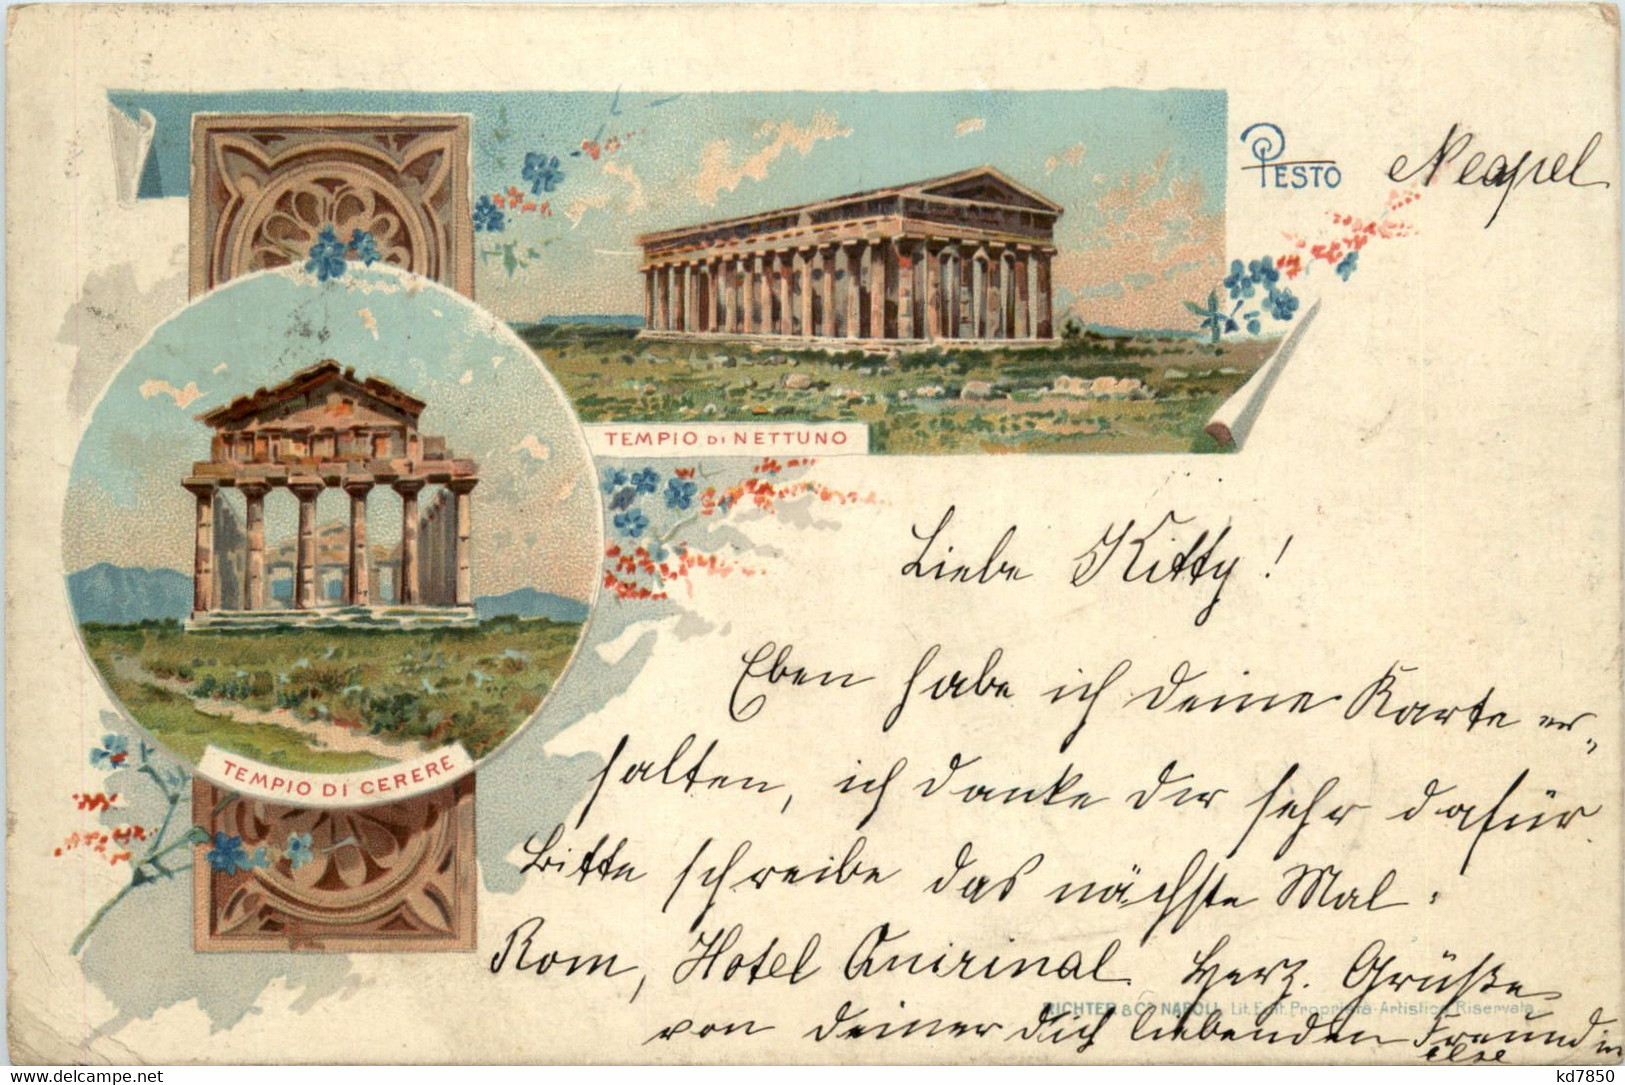 PESTO
Neapel
TEMPIO DI NETTUNO
TEMPIO DI CERERE
Liebe Kitty!
Eben habe ich deine Karte er„
halten, ich danke dir sehr dafür.
Bitte schreibe das nächste Mal:
Rom, Hotel Quirinal. Herz. Grüße
RICHTER & Co NAPOLI, Lit. Edit. Proprietà Artistica Riservata
von deiner dich liebenden Freundin
Else
www.delcampe.net
kd7850